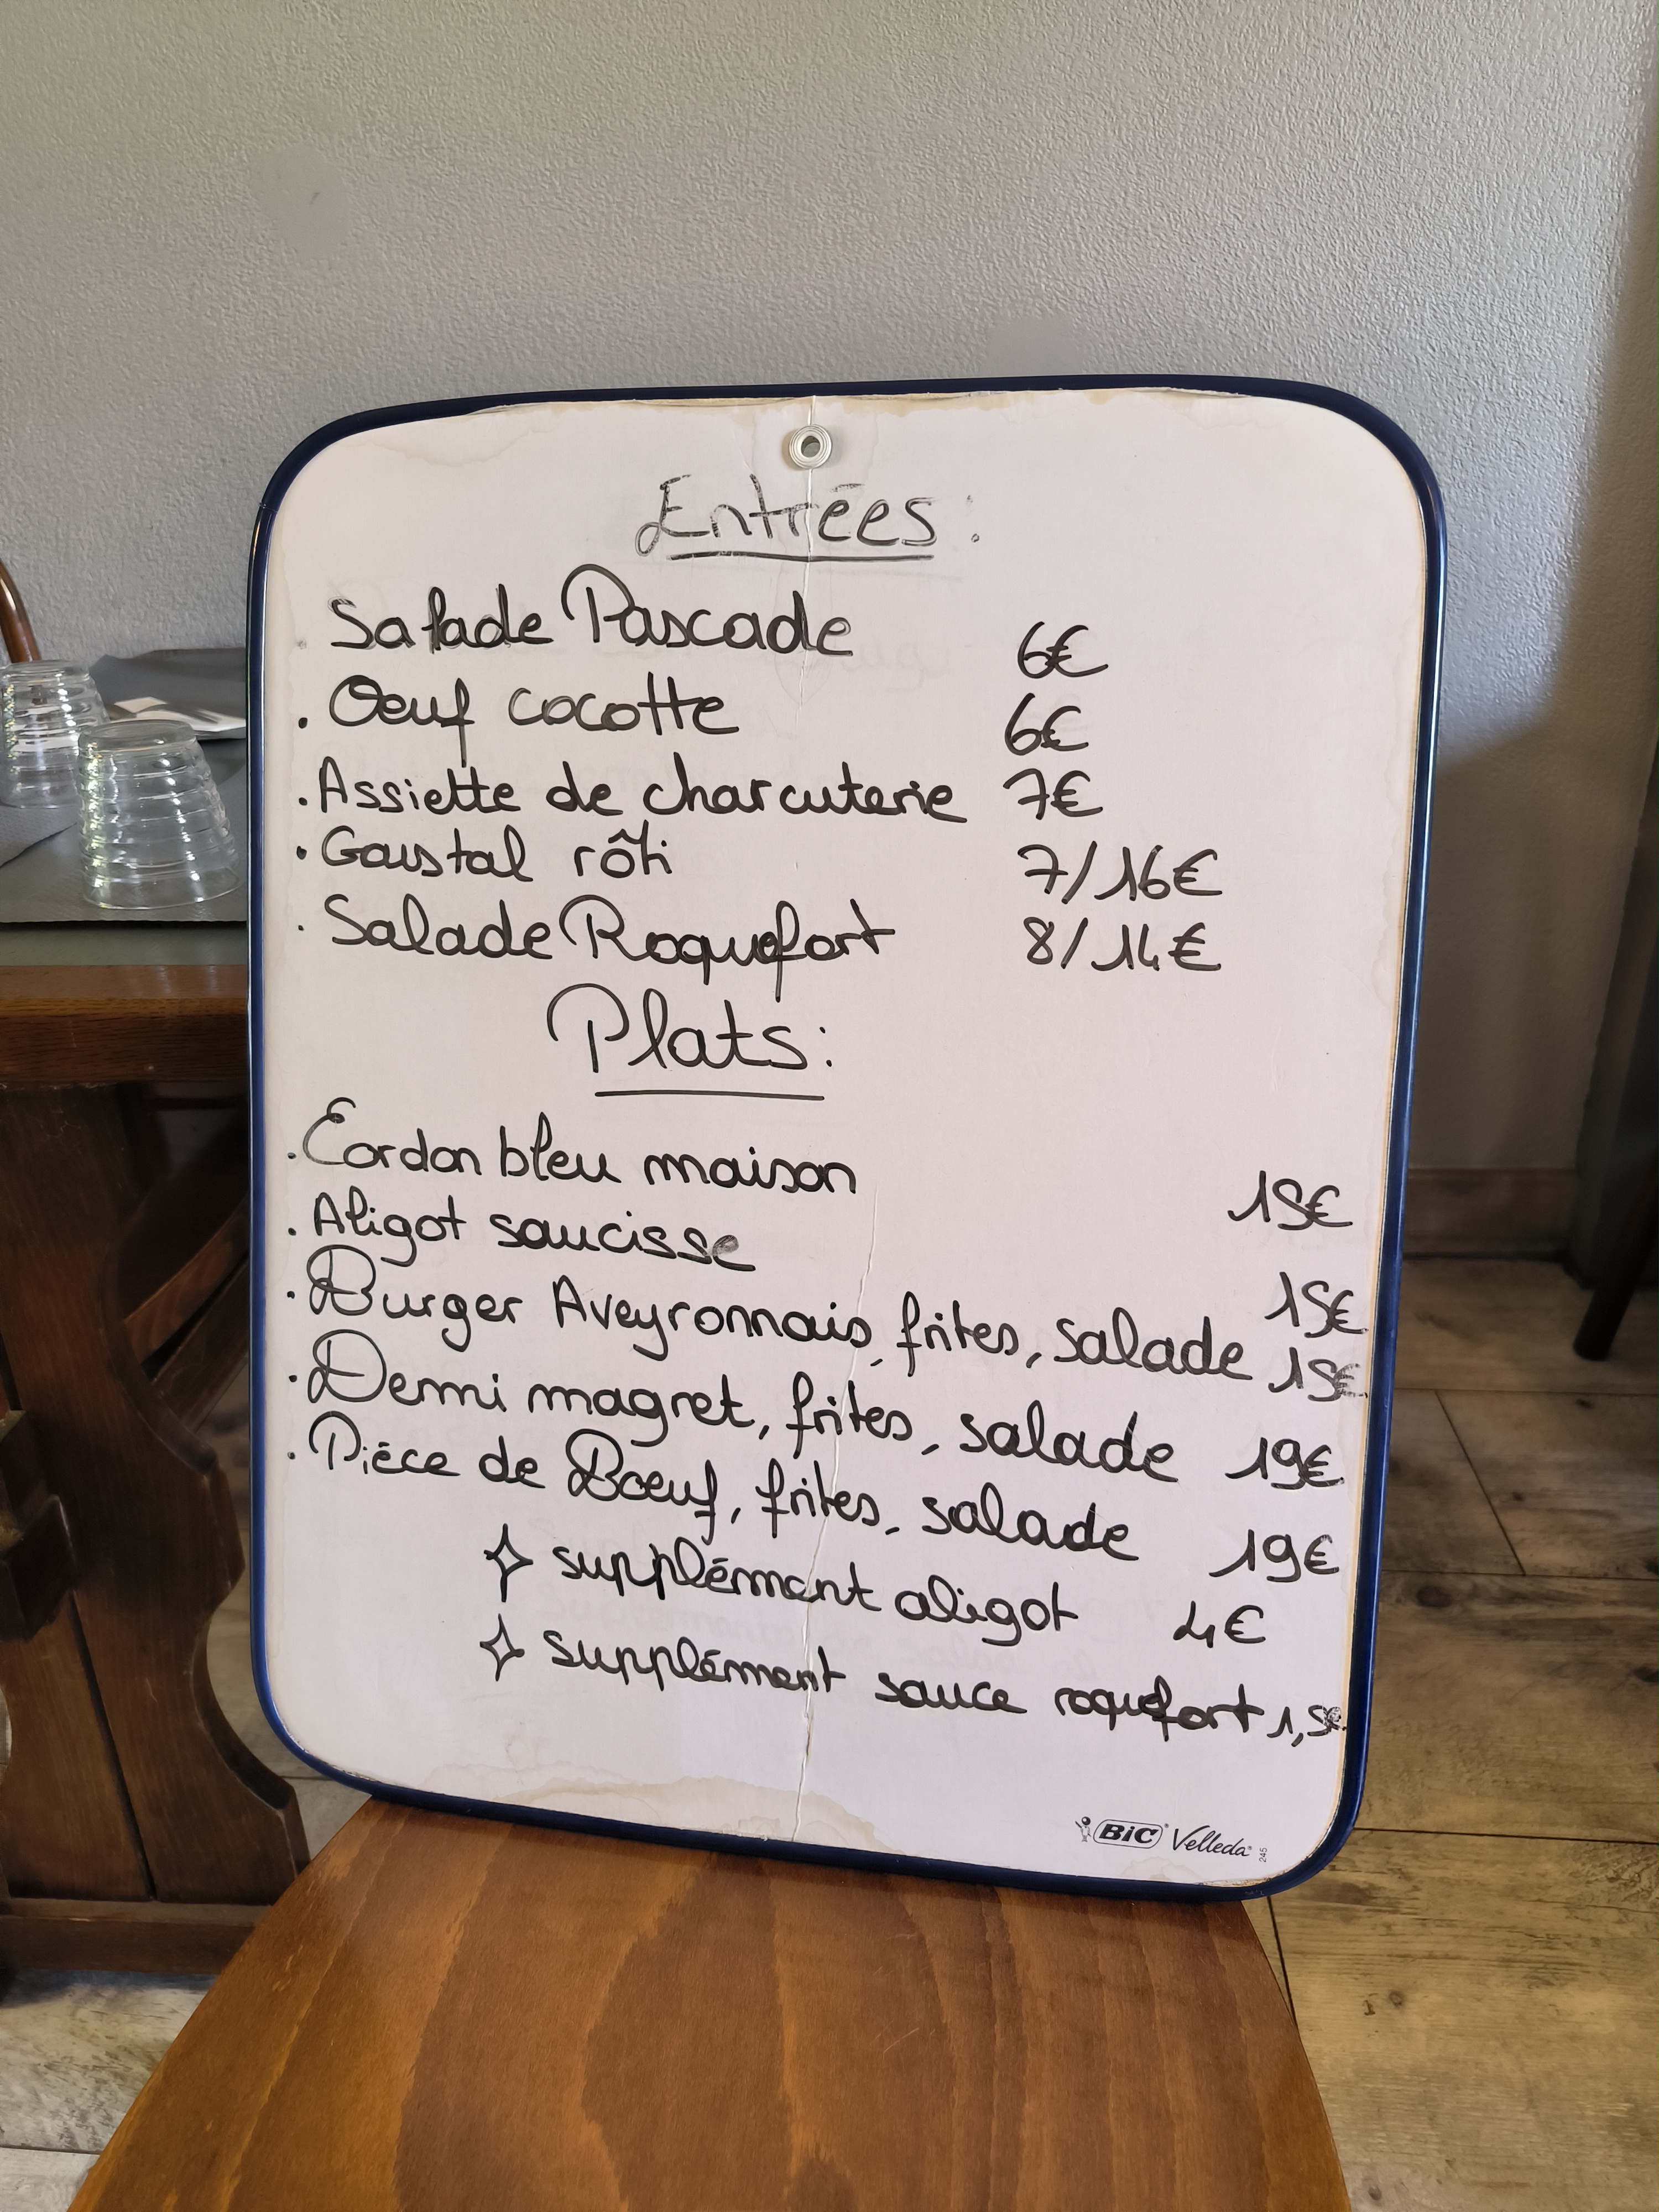 Entrées :
. Salade Pascade 6€
. Oeuf cocotte 6€
. Assiette de charcuterie 7€
. Gaustal rôti 7/16€
. Salade Roquefort 8/14€
Plats :
. Cordon bleu maison 15€
. Aligot saucisse 15€
. Burger Aveyronnais, frites, salade 15€
. Demi magret, frites, salade 19€
. Pièce de Boeuf, frites, salade 19€
✧ supplément aligot 4€
✧ supplément sauce roquefort 1,5€
BIC Velleda 245